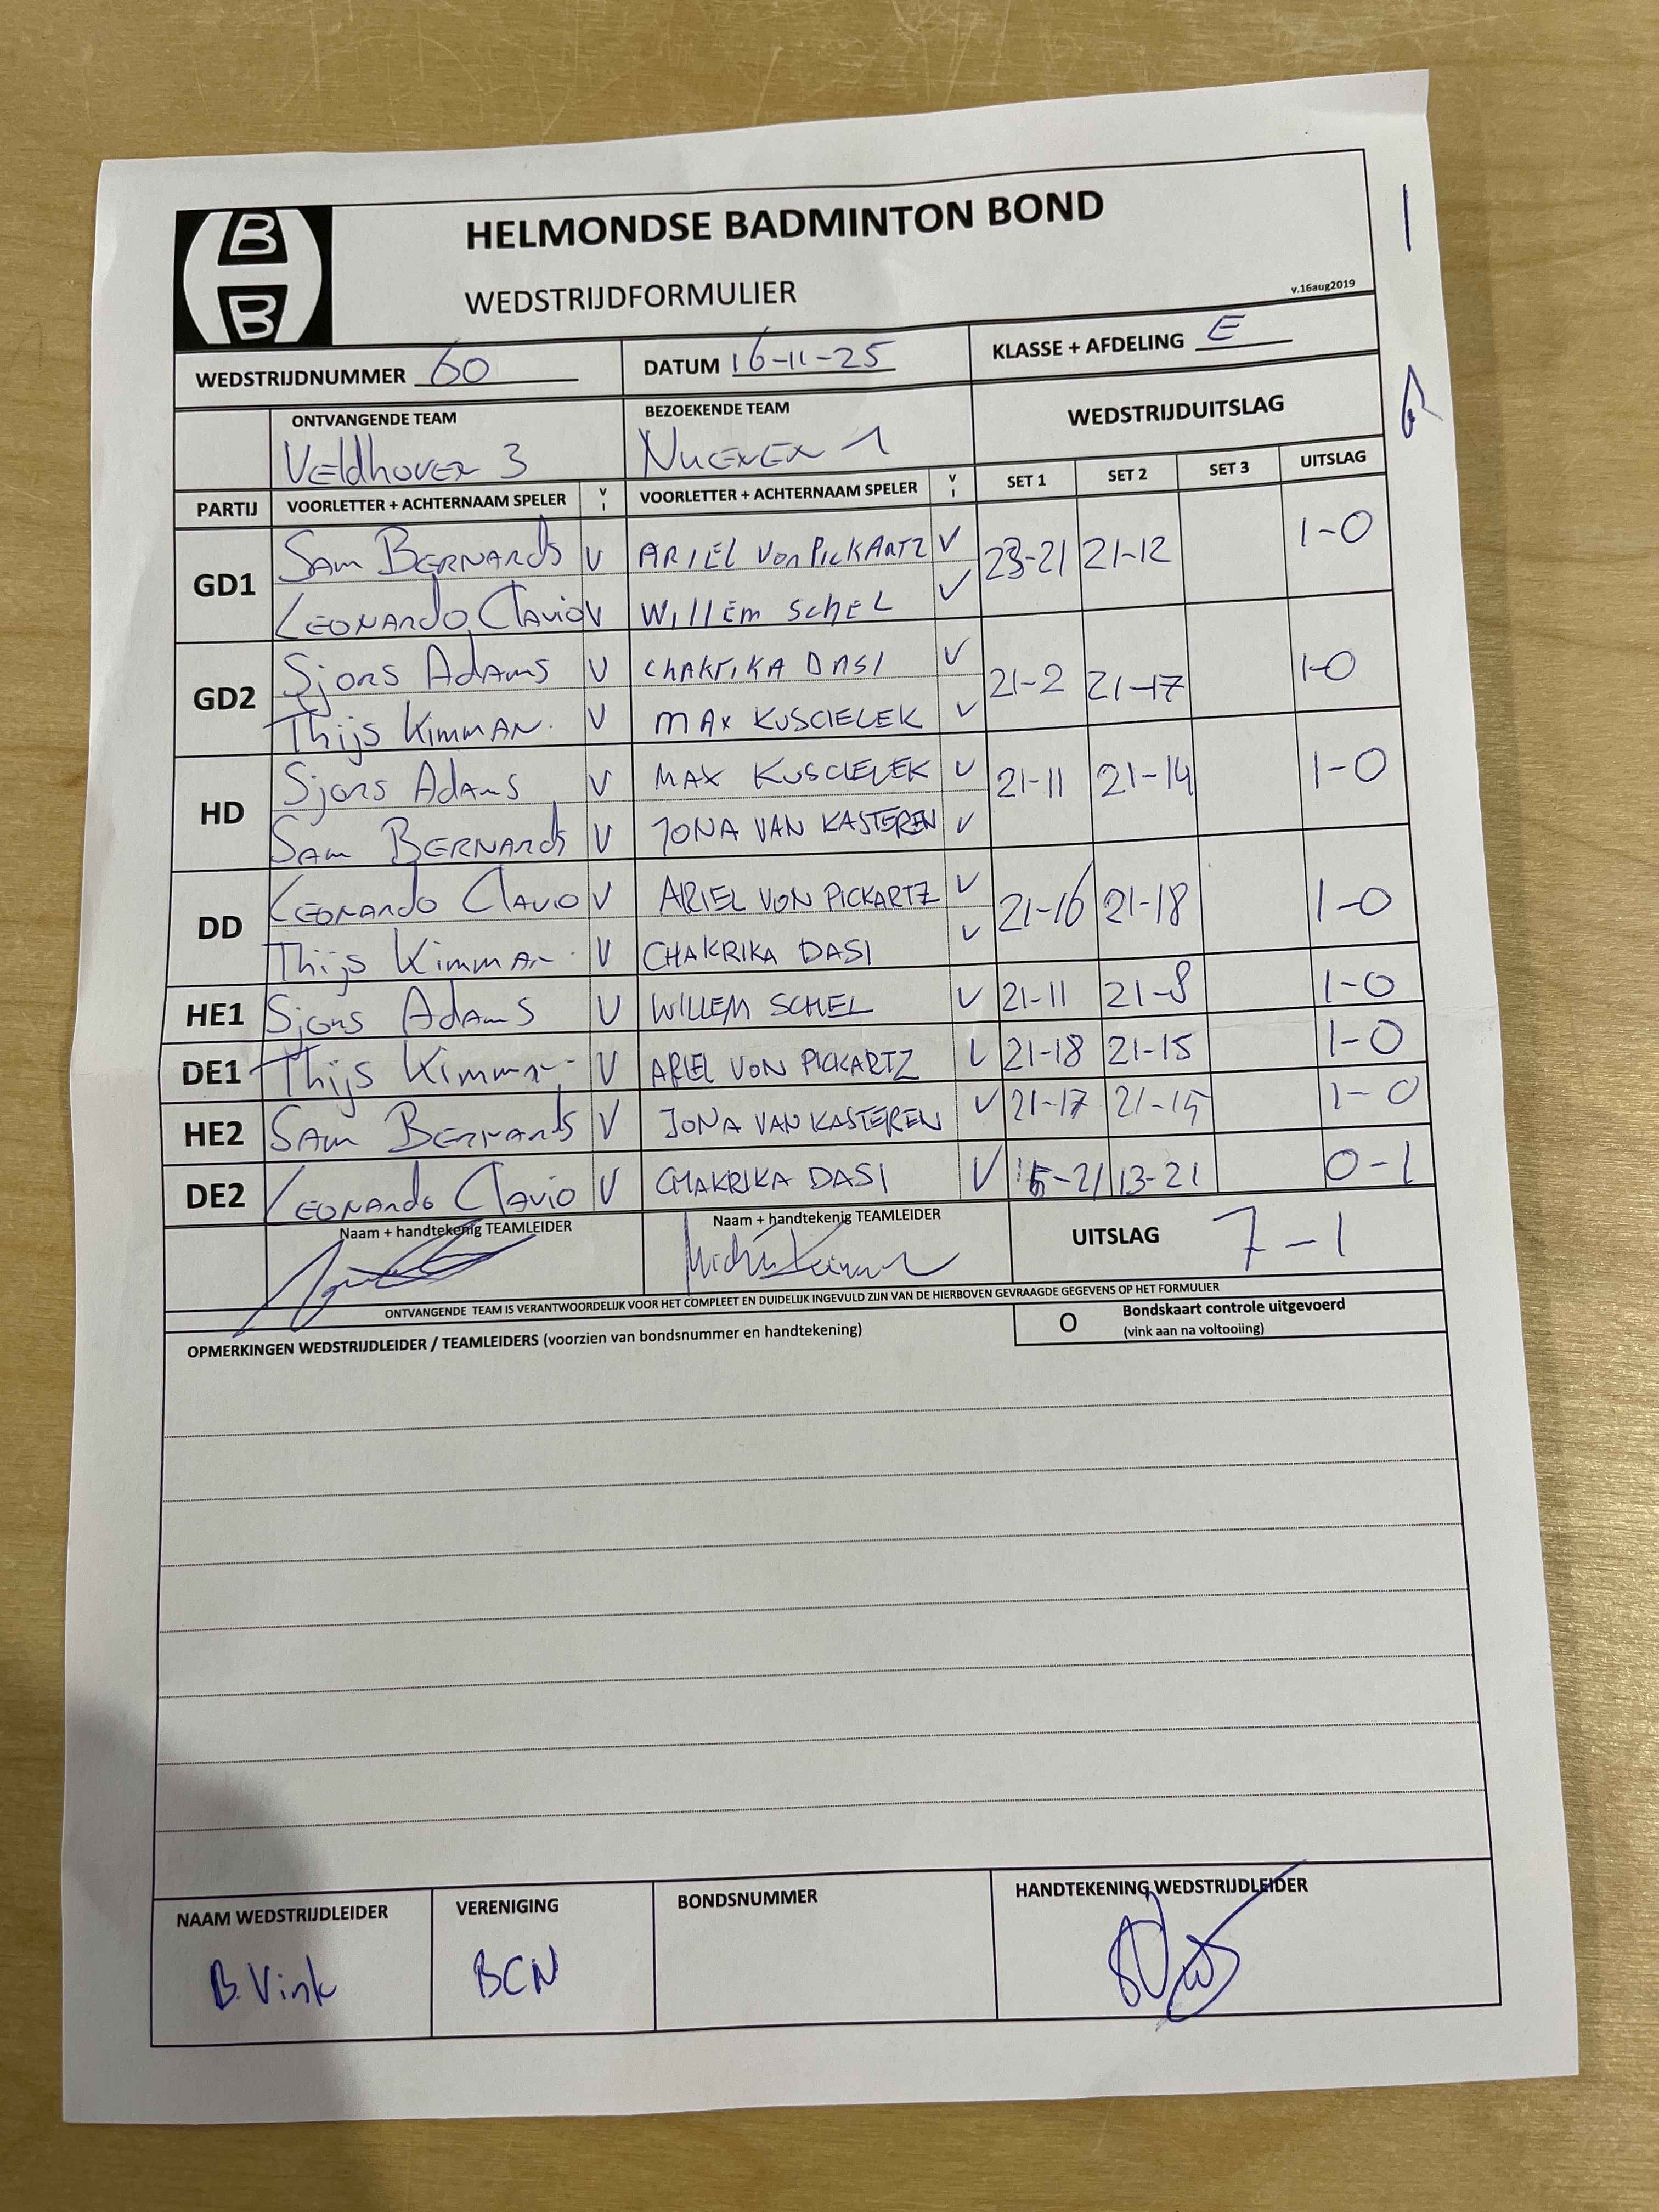 B
B
HELMONDSE BADMINTON BOND
WEDSTRIJDFORMULIER
v.16aug2019
WEDSTRIJDNUMMER 60 DATUM 16-11-25 KLASSE + AFDELING E
ONTVANGENDE TEAM BEZOEKENDE TEAM WEDSTRIJDUITSLAG
Veldhoven 3 Nuenen 1
PARTIJ VOORLETTER + ACHTERNAAM SPELER V I VOORLETTER + ACHTERNAAM SPELER V I SET 1 SET 2 SET 3 UITSLAG
GD1 Sam Bernards V ARIEL Von PickARTZ V 23-21 21-12 1-0
Leonardo Clavio V Willem Schel V
GD2 Sjors Adams V ChAKrikA DASI V 21-2 21-17 1-0
Thijs Kimman. V MAX KUSCIELEK V
HD Sjors Adams V MAX KUSCIELEK V 21-11 21-14 1-0
Sam Bernards V JONA VAN KASTEREN V
DD Leonardo Clavio V ARIEL VON PICKARTZ V 21-16 21-18 1-0
Thijs Kimman. V CHAKRIKA DASI V
HE1 Sjors Adams V WILLEM SCHEL V 21-11 21-8 1-0
DE1 Thijs Kimman V ARIEL VON PICKARTZ V 21-18 21-15 1-0
HE2 Sam Bernards V JONA VAN KASTEREN V 21-17 21-15 1-0
DE2 Leonardo Clavio V CHAKRIKA DASI V 15-21 13-21 0-1
Naam + handtekenig TEAMLEIDER Naam + handtekenig TEAMLEIDER UITSLAG 7-1
ONTVANGENDE TEAM IS VERANTWOORDELIJK VOOR HET COMPLEET EN DUIDELIJK INGEVULD ZIJN VAN DE HIERBOVEN GEVRAAGDE GEGEVENS OP HET FORMULIER
OPMERKINGEN WEDSTRIJDLEIDER / TEAMLEIDERS (voorzien van bondsnummer en handtekening) O Bondskaart controle uitgevoerd
(vink aan na voltooiing)
NAAM WEDSTRIJDLEIDER VERENIGING BONDSNUMMER HANDTEKENING WEDSTRIJDLEIDER
B. Vink BCN